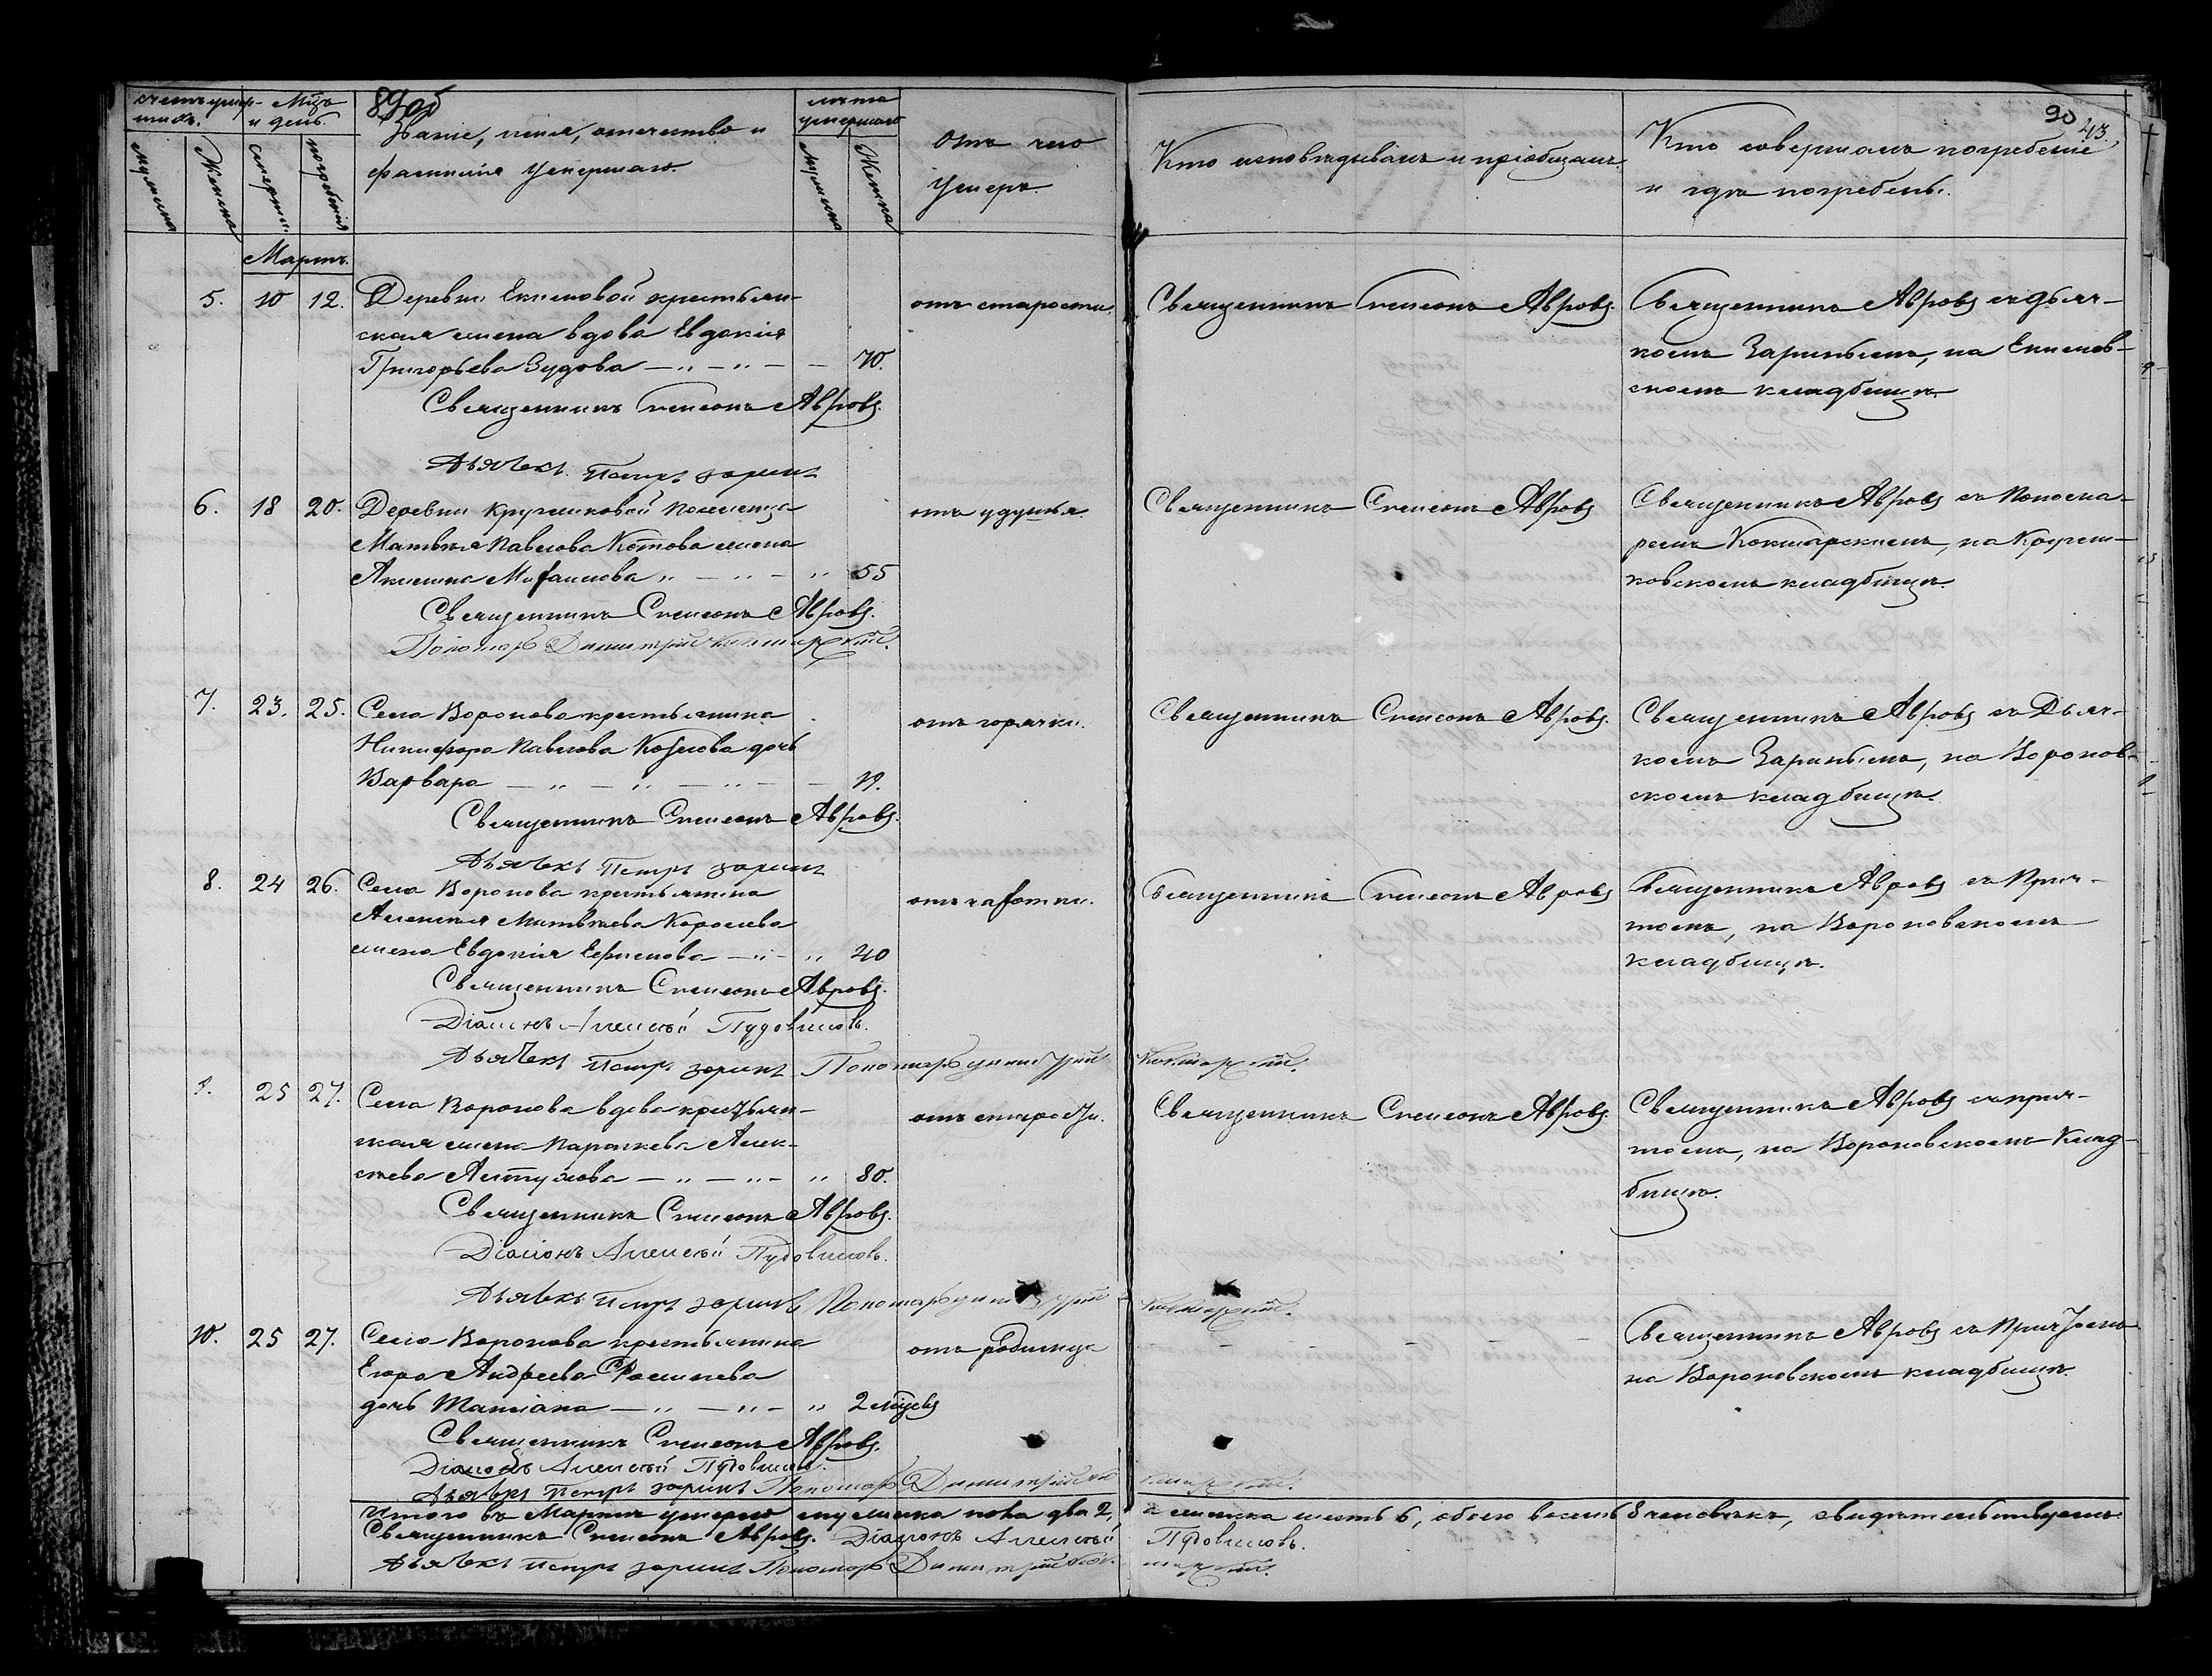 счетъ умер-
шихъ.
Мцъ
и день.
89 об
Званіе, имя, отечество и
фамилія умершаго.
лѣта
умершаго
Отъ чего
умеръ
Кто исповѣдывалъ и пріобщалъ
90
43
Кто совершалъ погребеніе
и гдѣ погребены.
мужеска
Женска
смерти.
погребенія
мужеска
Женска
Мартъ.
5. 10 12. Деревни Екимовой крестьян-
ская жена вдова Евдокія
Григорьева Зудова — „ — „ — — 70.
отъ старости.
Священникъ Симеонъ Авровъ.
Священникъ Авровъ съ дьяч-
комъ Заринымъ, на Екимов-
скомъ кладбищѣ.
Священникъ Симеонъ Авровъ.
Дьячекъ Петръ Заринъ
6. 18 20. Деревни Кругликовой помѣщи
Матвѣя Павлова Котова жена
Акилина Михаилова „ — „ — „ 55
отъ удушья
Священникъ Симеонъ Авровъ
Священникъ Авровъ съ Понома-
ремъ Кокшарскимъ, на Кругли-
ковскомъ кладбищѣ.
Священникъ Симеонъ Авровъ.
Пономарь Димитрій Кокшарскій.
7. 23. 25. Села Воронова крестьянина
Никифора Павлова Козлова дочь
Варвара — „ — „ — „ — — 19.
отъ горячки.
Священникъ Симеонъ Авровъ.
Священникъ Авровъ съ Дьяч-
комъ Заринымъ, на Воронов-
скомъ кладбищѣ.
Священникъ Симеонъ Авровъ.
Дьячекъ Петръ Заринъ
8. 24 26. Села Воронова крестьянина
Алексѣя Матвѣева Королева
жена Евдокія Ефимова — „ — „ 40
отъ чахотки.
Священникъ Симеонъ Авровъ
Священникъ Авровъ съ Прич-
томъ, на Вороновскомъ
кладбищѣ.
Священникъ Симеонъ Авровъ.
Діаконъ Алексѣй Пудовиковъ.
Дьячекъ Петръ Заринъ Пономарь Димитрій Кокшарскій.
9. 25 27. Села Воронова вдова крестьян-
ская жена Параскева Алек-
сѣева Алтухова — „ — „ — „ 80.
отъ старости.
Священникъ Симеонъ Авровъ.
Священникъ Авровъ съ прич-
томъ, на Вороновскомъ Клад-
бищѣ.
Священникъ Симеонъ Авровъ.
Діаконъ Алексѣй Пудовиковъ.
Дьячекъ Петръ Заринъ Пономарь Димитрій Кокшарскій.
10. 25 27. Села Воронова крестьянина
Егора Андреева
дочь Татіана — „ — „ — „ 2 мѣсяцъ
отъ родимца
Священникъ Авровъ съ Причтомъ
на Вороновскомъ кладбищѣ.
Священникъ Симеонъ Авровъ.
Діаконъ Алексѣй Пудовиковъ.
Дьячекъ Петръ Заринъ Пономарь Димитрій Кокшарскій.
Итого въ Мартѣ умерло мужеска пола два 2, а женска шесть 6, обоего восемь 8 человѣкъ, свидѣтельствуемъ
Священникъ Симеонъ Авровъ. Діаконъ Алексѣй Пудовиковъ.
Дьячекъ Петръ Заринъ Пономарь Димитрій Кокшарскій.